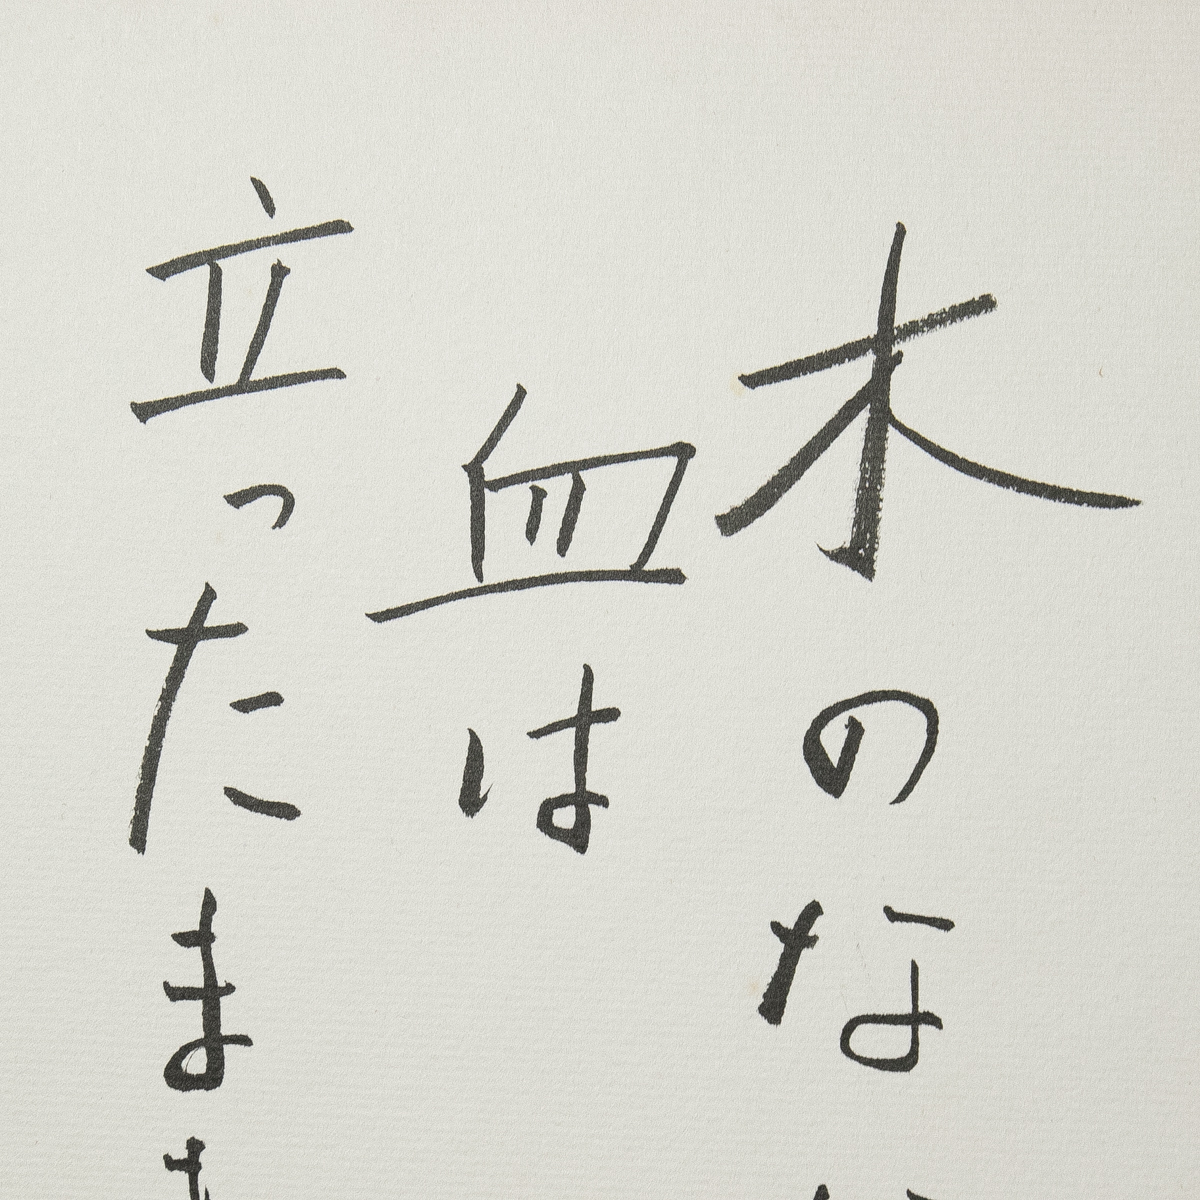 木のな
血は
立ったまま